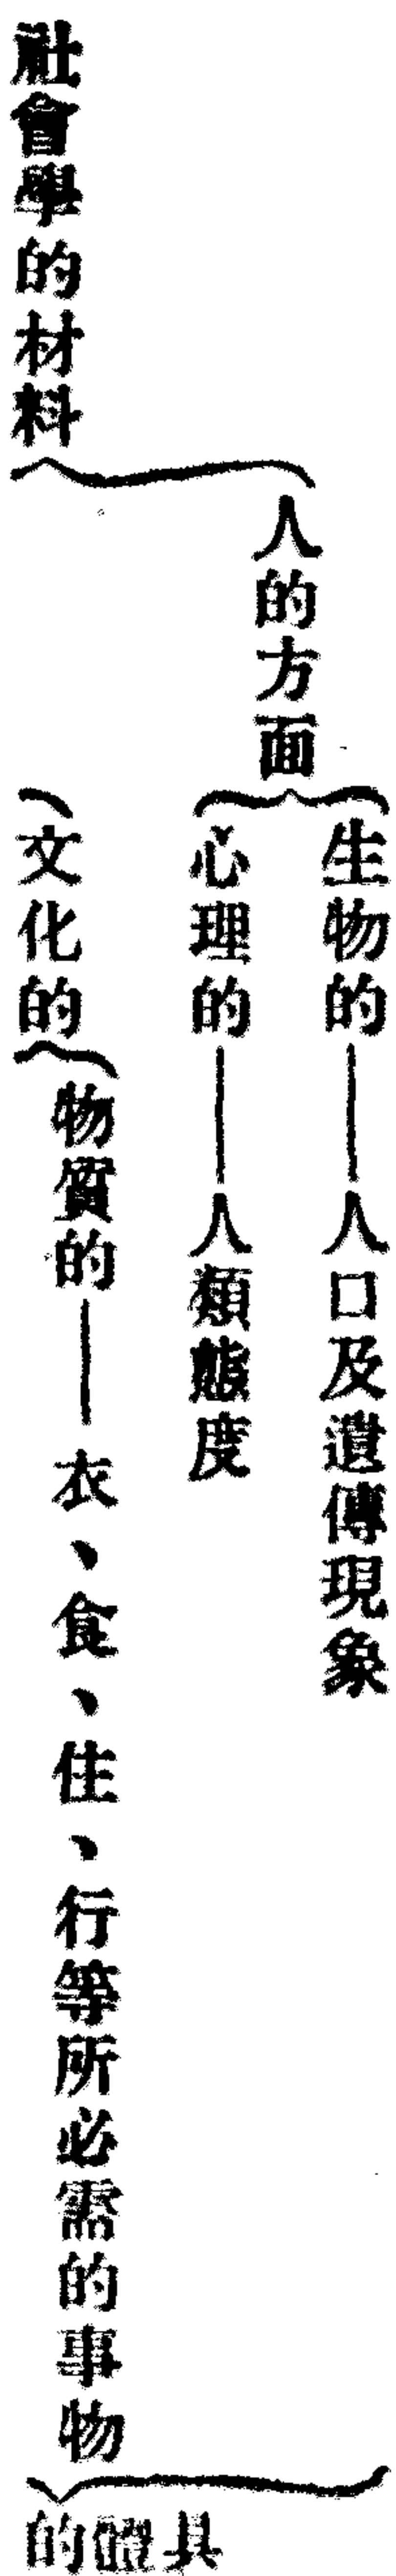 社會學的材料
人的方面
生物的——人口及遺傳現象
心理的——人類態度
文化的
物質的——衣、食、住、行等所必需的事物
具體的